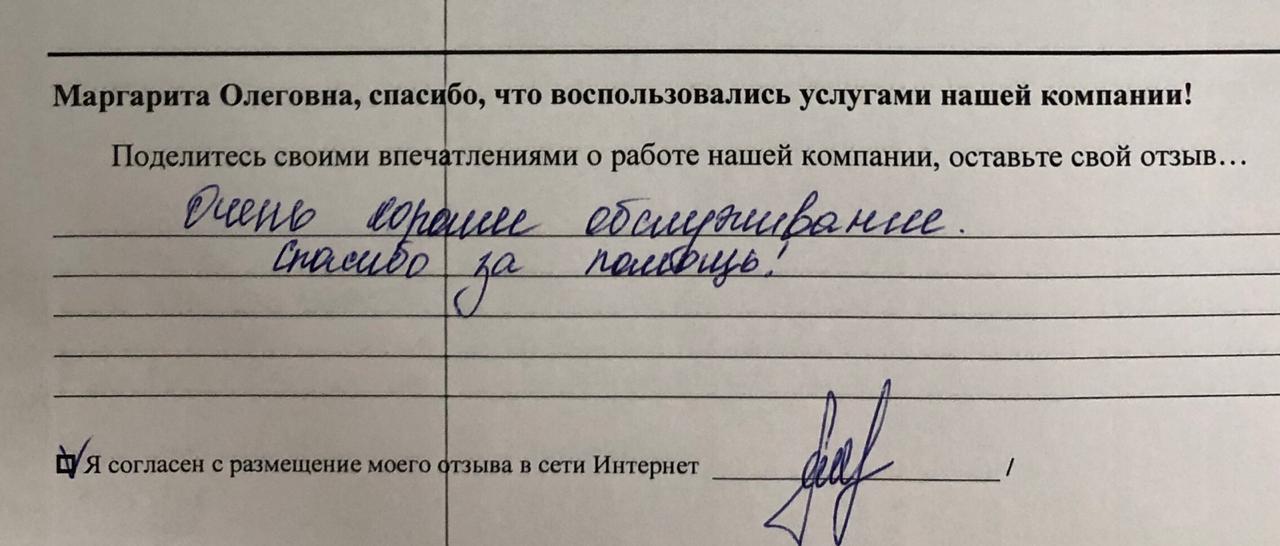 Маргарита Олеговна, спасибо, что воспользовались услугами нашей компании!
Поделитесь своими впечатлениями о работе нашей компании, оставьте свой отзыв…
Очень хорошее обслуживание.
Спасибо за помощь!
Я согласен с размещение моего отзыва в сети Интернет /